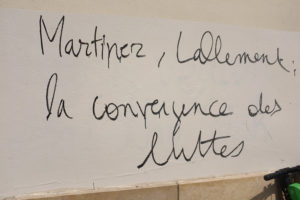 Martinez, Lallement :
la convergence des
luttes